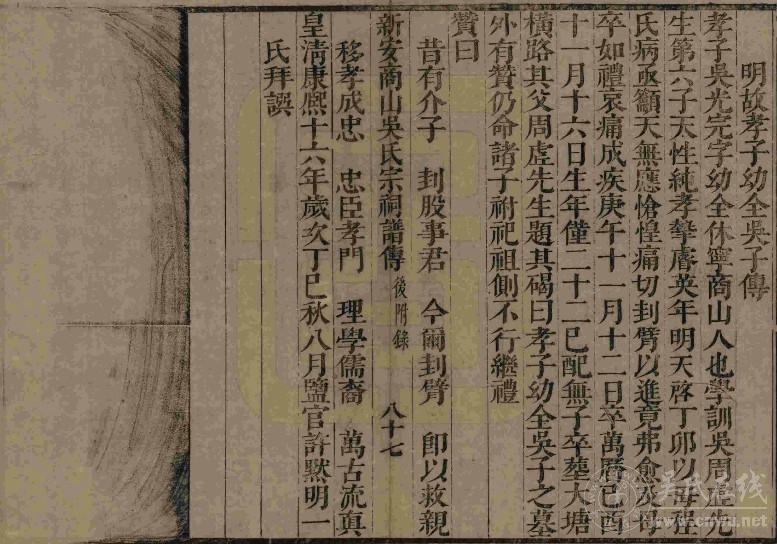 明故孝子幼全吳子傳
孝子吳光完字幼全休寧商山人也學訓吳周虛先
生第六子天性純孝摯睿英年明天啓丁卯以母程
氏病亟籲天無應愴惶痛切刲臂以進竟弗愈及母
卒如禮哀痛成疾庚午十一月十二日卒萬曆己酉
十一月十六日生年僅二十二已配無子卒塟大塘
橫路其父周虛先生題其碣曰孝子幼全吳子之墓
外有贊仍命諸子祔祀祖側不行繼禮
贊曰
昔有介子　刲股事君　今爾刲臂　卽以救親
新安商山吳氏宗祠譜傳 後附錄 八十七
移孝成忠　忠臣孝門　理學儒裔　萬古流真
皇淸康熙十六年歲次丁巳秋八月鹽官許默明一
氏拜譔
吴氏在线
www.cnwu.net